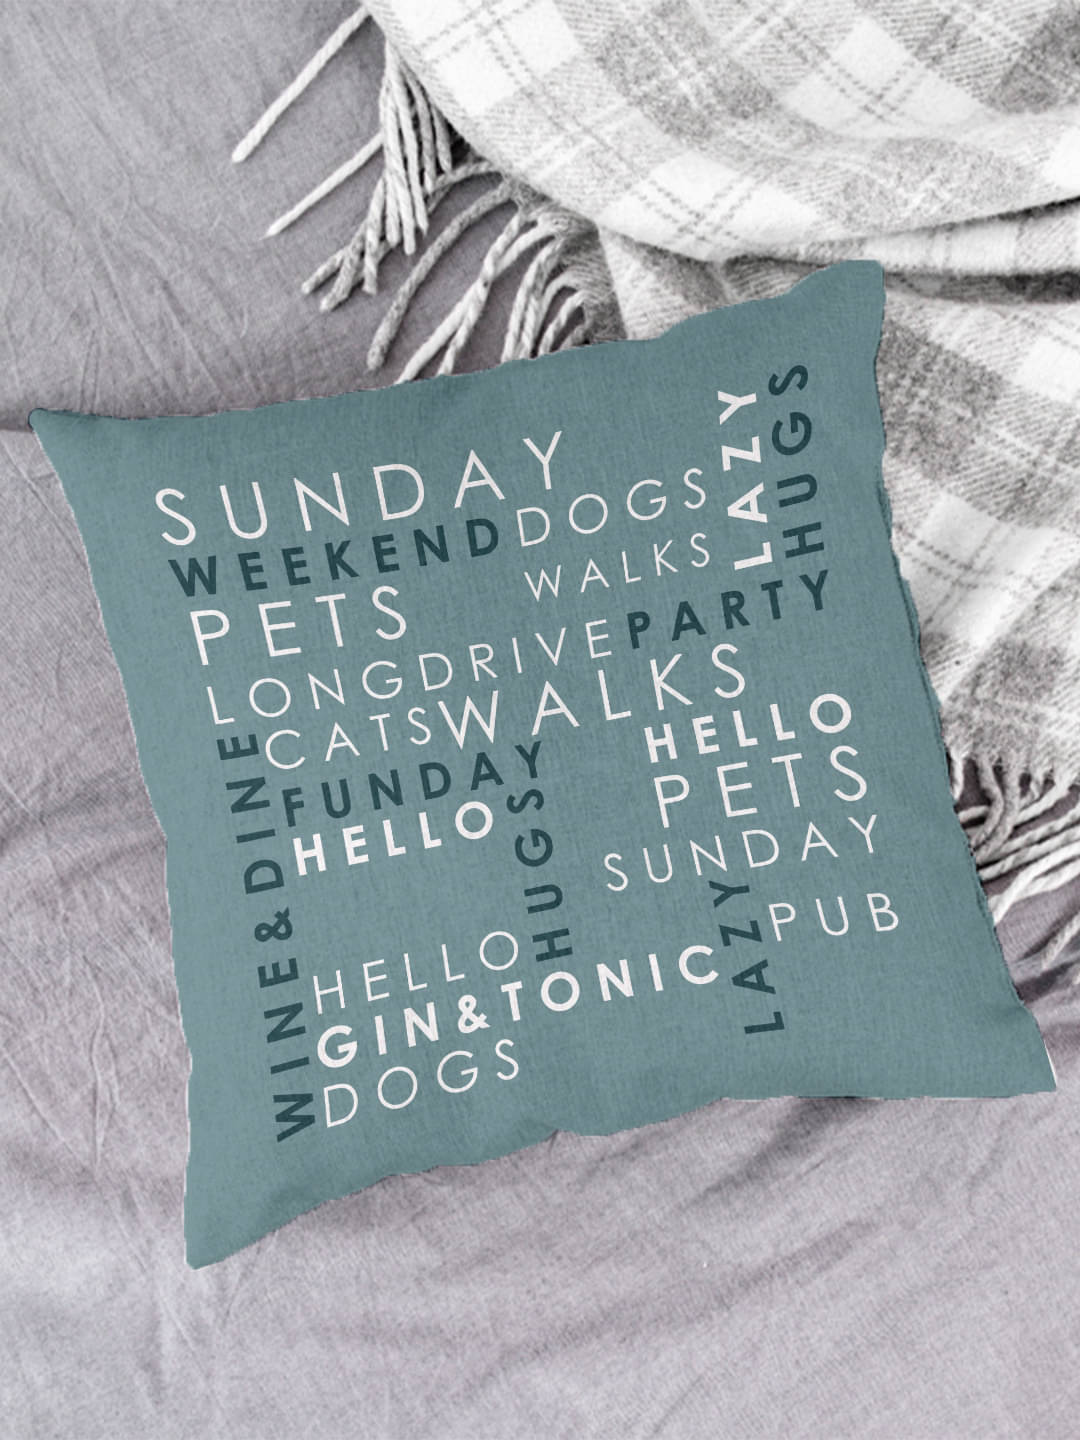 SUNDAY
LAZY
HUGS
WEEKEND DOGS
WALKS
PETS
PARTY
LONGDRIVE
CATS WALKS
WINE&DINE
HELLO
FUNDAY
PETS
HELLO
HUGS
SUNDAY
LAZY
PUB
HELLO
GIN&TONIC
DOGS